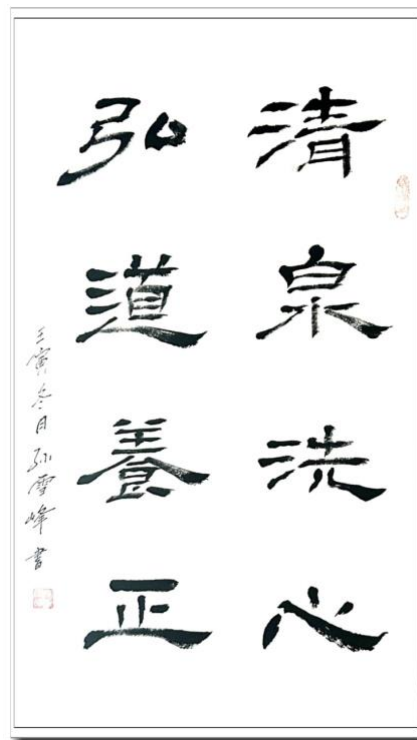 清泉洗心
弘道養正
壬寅冬月孙雪峰書